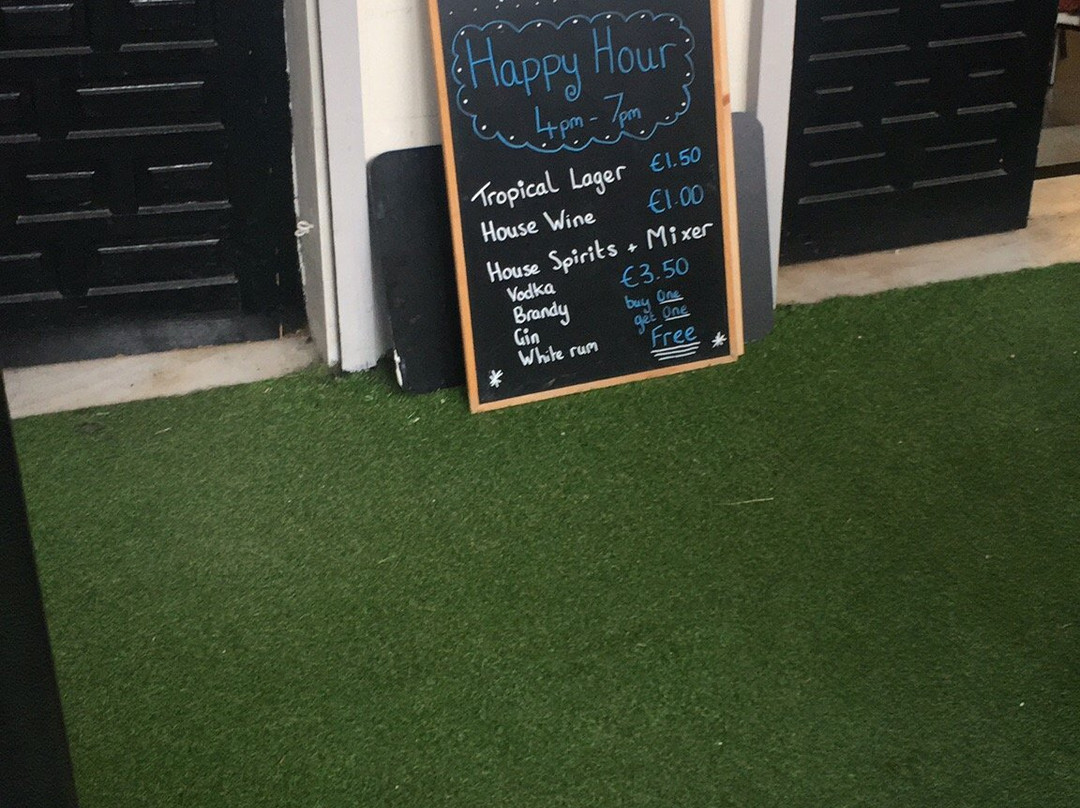 Happy Hour
4pm - 7pm
Tropical Lager €1.50
House Wine €1.00
House Spirits + Mixer
Vodka €3.50
Brandy buy One
Gin get One
White rum Free